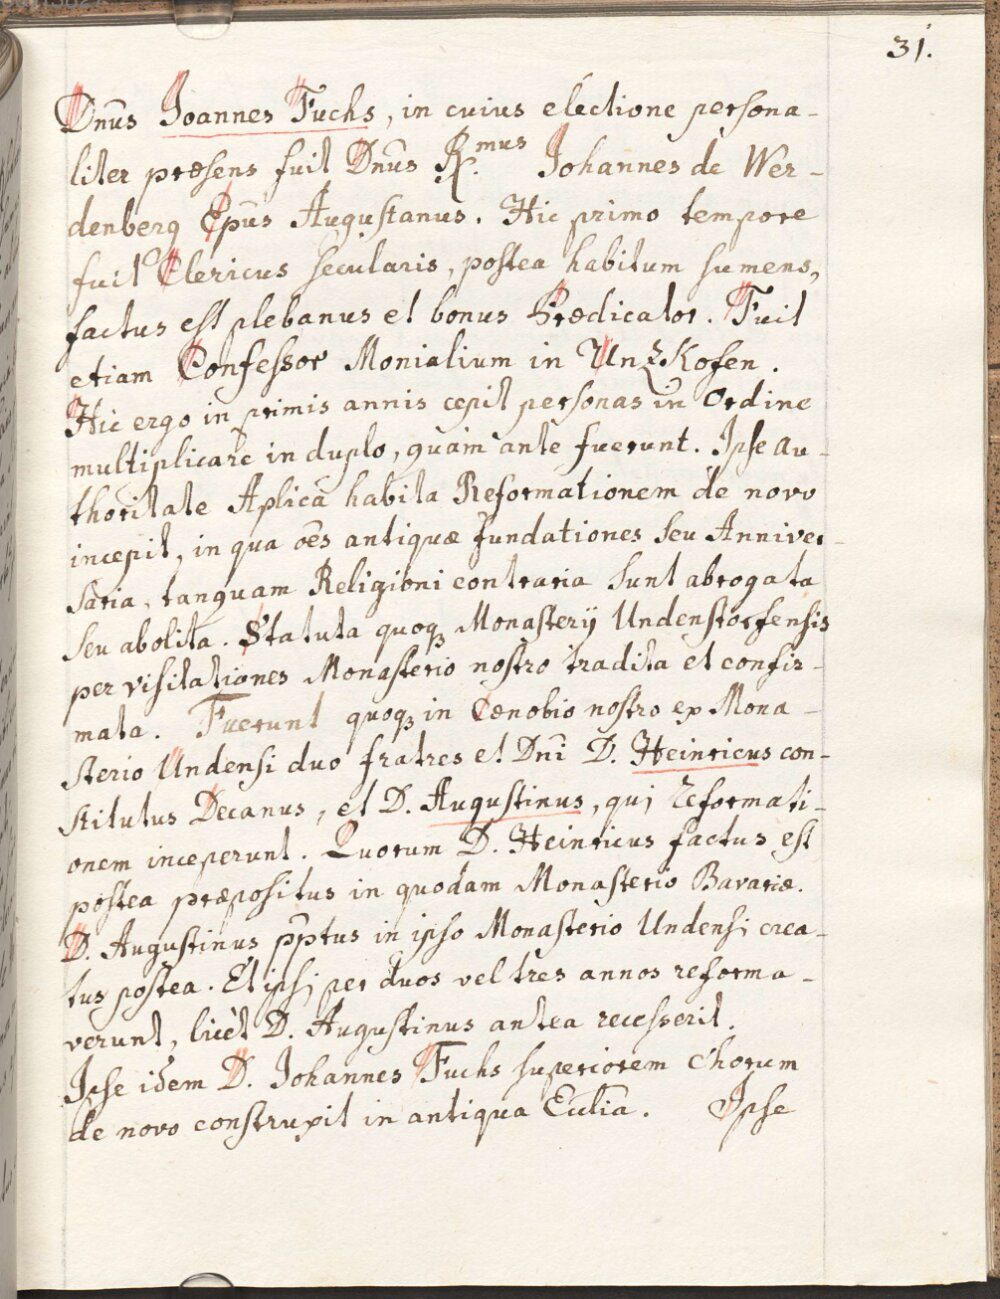 31.
Dñus Joannes Fuchs, in cuius electione persona-
liter præsens fuit Dñus R.mus Johannes de Wer-
denberg Epũs Augustanus. Hic primo tempore
fuit Clericus secularis, postea habitum sumens,
factus est plebanus et bonus Prædicator. Fuit
etiam Confessor Monialium in UnzKofen.
Hic ergo in primis annis cepit personas in Ordine
multiplicare in duplo, quam ante fuerunt. Ipse au-
thoritate Aplicã habita Reformationem de novo
incepit, in qua oẽs antiquæ fundationes seu Anniver-
saria, tanquam Religioni contraria sunt abrogata
seu abolita. Statuta quoqꝫ Monasterij Undenstorfensis
per visitationes Monasterio nostro tradita et confir-
mata. Fuerunt quoqꝫ in Cœnobio nostro ex Mona-
sterio Undensi duo fratres et Dñi D. Heinricus con-
stitutus Decanus, et D. Augustinus, qui reformati-
onem inceperunt. Quorum D. Heinricus factus est
postea præpositus in quodam Monasterio Bavariæ.
D. Augustinus pp̃tus in ipso Monasterio Undensi crea-
tus postea. Et ipsi per duos vel tres annos reforma-
verunt, licet D. Augustinus antea recesserit.
Ipse idem D. Johannes Fuchs superiorem Chorum
de novo construxit in antiqua Ecclĩa. Ipse